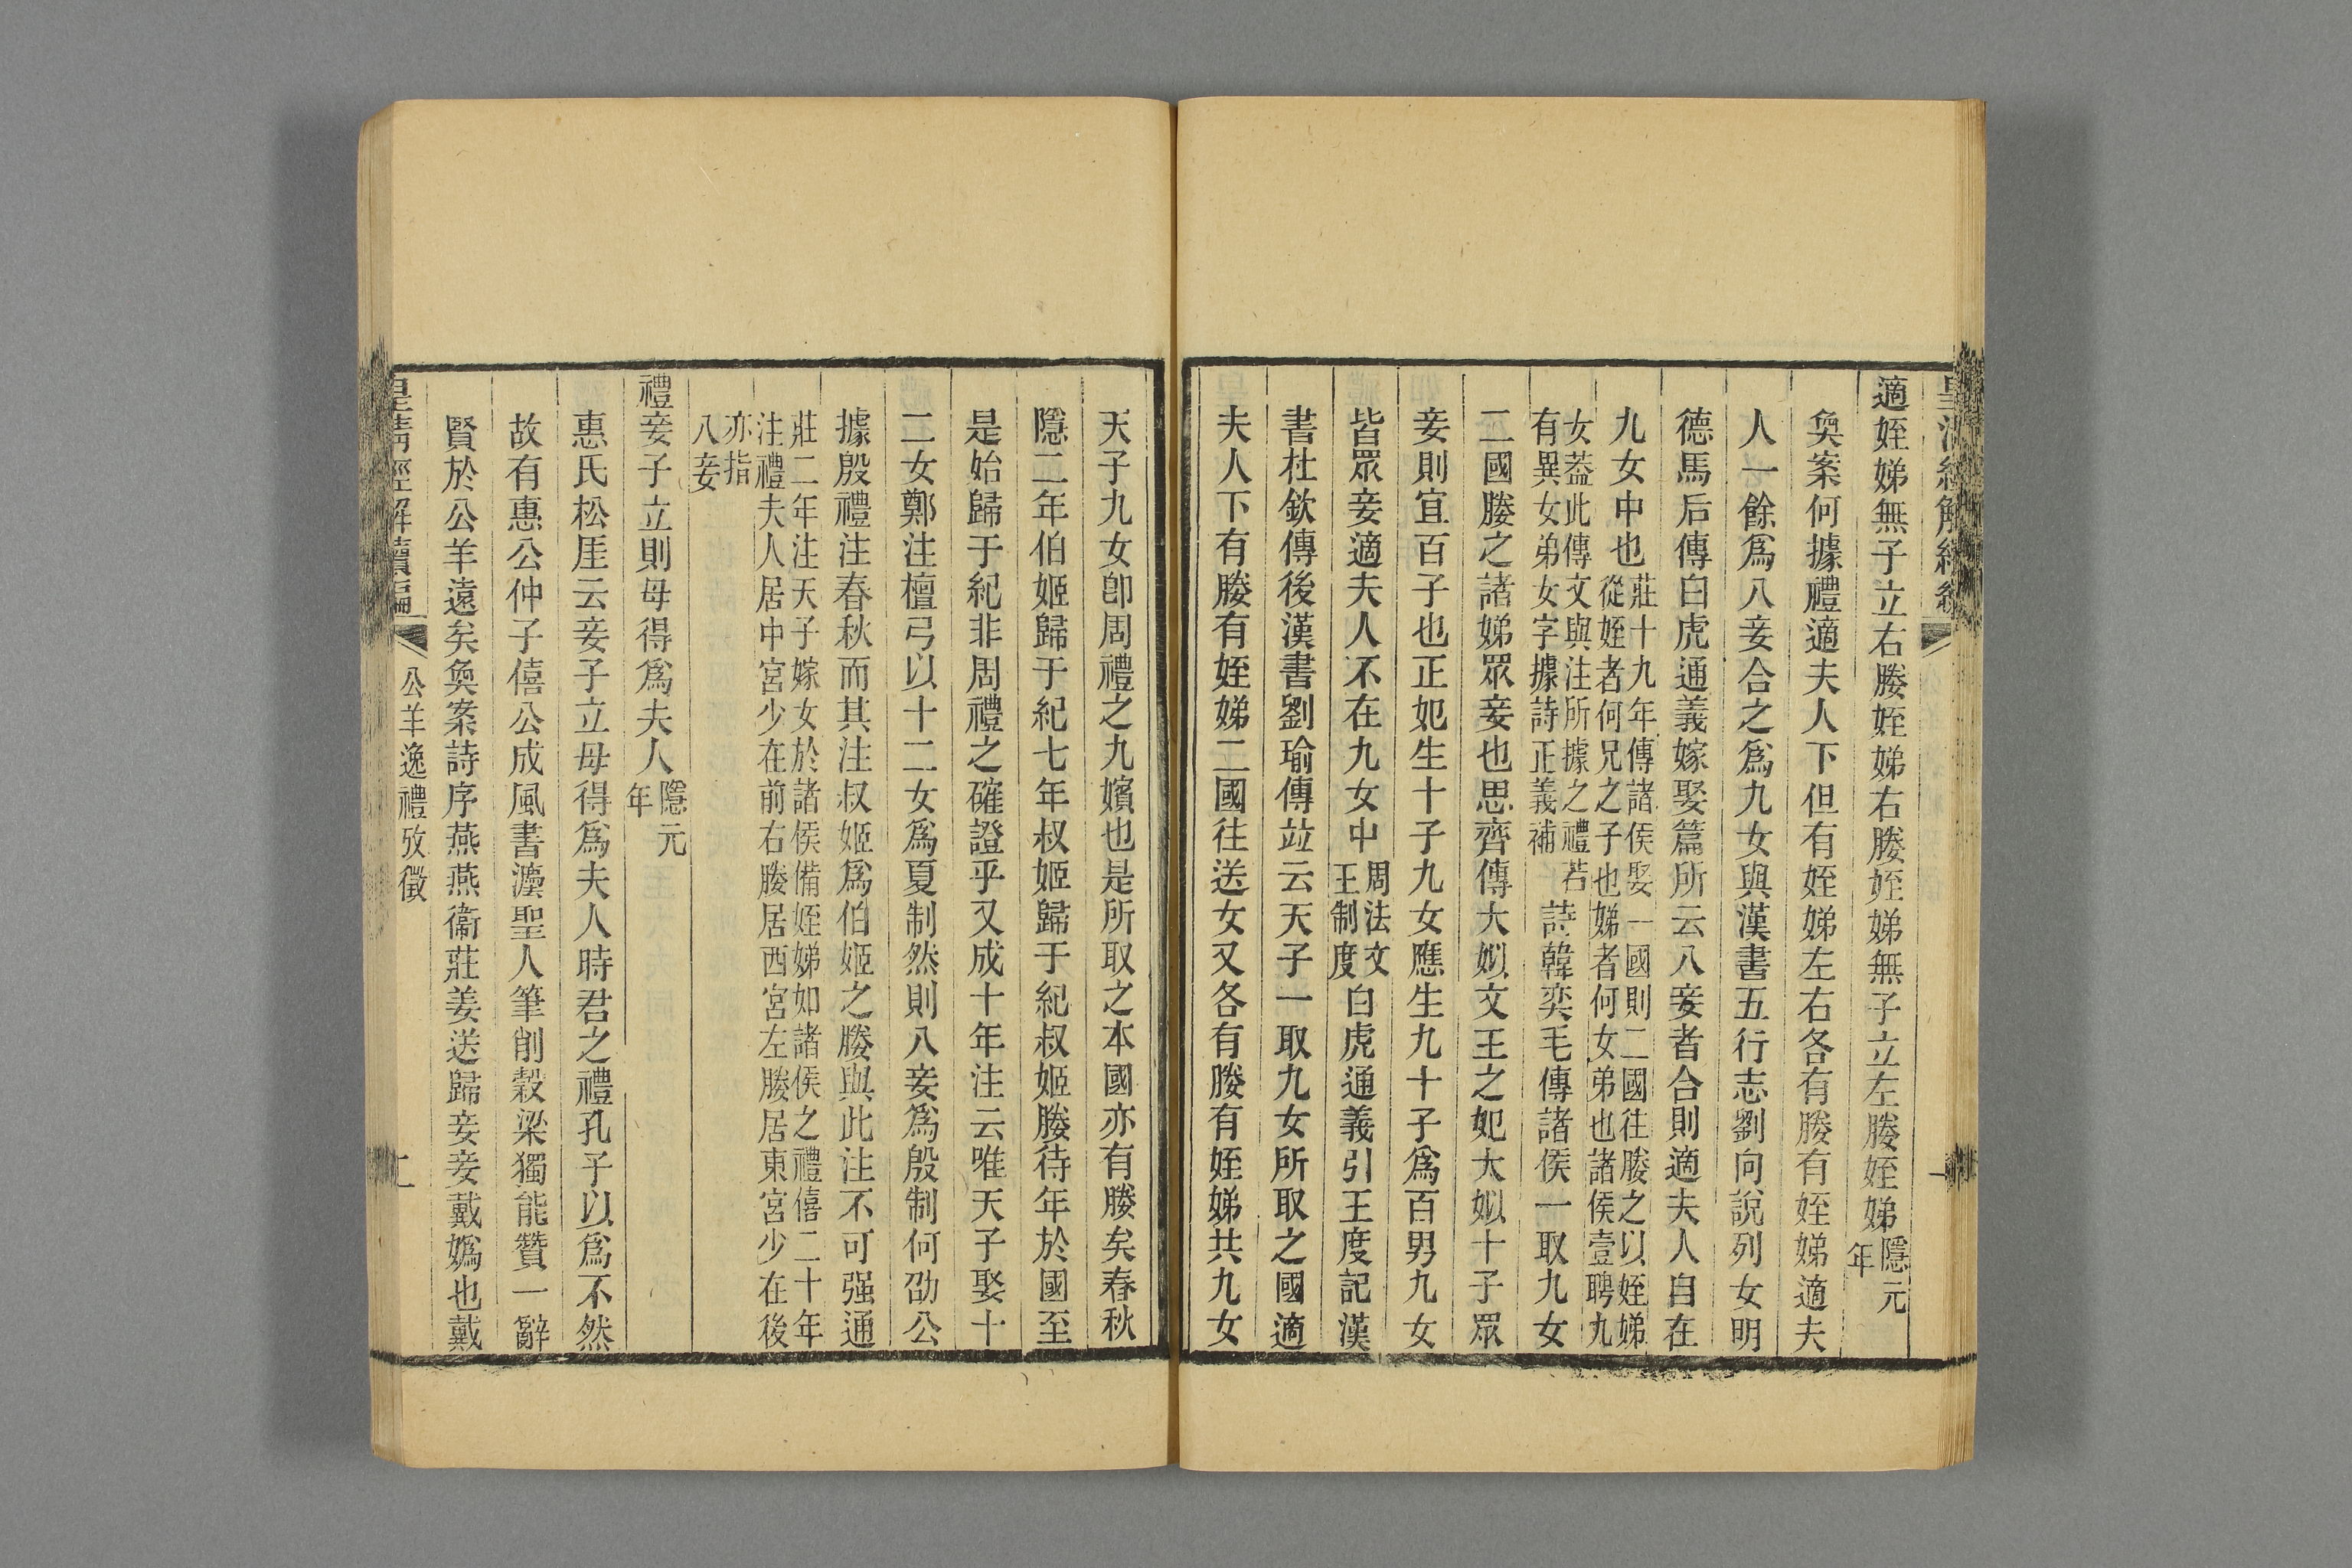 皇清經解續編
適姪娣無子立右媵姪娣右媵姪娣無子立左媵姪娣隱元年
奐案何據禮適夫人下但有姪娣左右各有媵有姪娣適夫
人一餘爲八妾合之爲九女與漢書五行志劉向說列女明
德馬后傳白虎通義嫁娶篇所云八妾者合則適夫人自在
九女中也莊十九年傳諸侯娶一國則二國往媵之以姪娣從姪者何兄之子也娣者何女弟也諸侯壹聘九
女葢此傳文與注所據之禮若有異女弟女字據詩正義補詩韓奕毛傳諸侯一取九女
二國媵之諸娣眾妾也思齊傳大姒文王之妃大姒十子眾
妾則宜百子也正妃生十子九女應生九十子爲百男九女
皆眾妾適夫人不在九女中周法文王制度白虎通義引王度記漢
書杜欽傳後漢書劉瑜傳竝云天子一取九女所取之國適
夫人下有媵有姪娣二國往送女又各有媵有姪娣共九女
天子九女卽周禮之九嬪也是所取之本國亦有媵矣春秋
隱二年伯姬歸于紀七年叔姬歸于紀叔姬媵待年於國至
是始歸于紀非周禮之確證乎又成十年注云唯天子娶十
二女鄭注檀弓以十二女爲夏制然則八妾爲殷制何劭公
據殷禮注春秋而其注叔姬爲伯姬之媵與此注不可强通
莊二年注天子嫁女於諸侯備姪娣如諸侯之禮僖二十年注禮夫人居中宮少在前右媵居西宮左媵居東宮少在後
亦指八妾
禮妾子立則母得爲夫人隱元年
惠氏松厓云妾子立母得爲夫人時君之禮孔子以爲不然
故有惠公仲子僖公成風書灋聖人筆削榖梁獨能贊一辭
賢於公羊遠矣奐案詩序燕燕衞莊姜送歸妾妾戴嬀也戴
皇淸經解續編
公羊逸禮攷徵